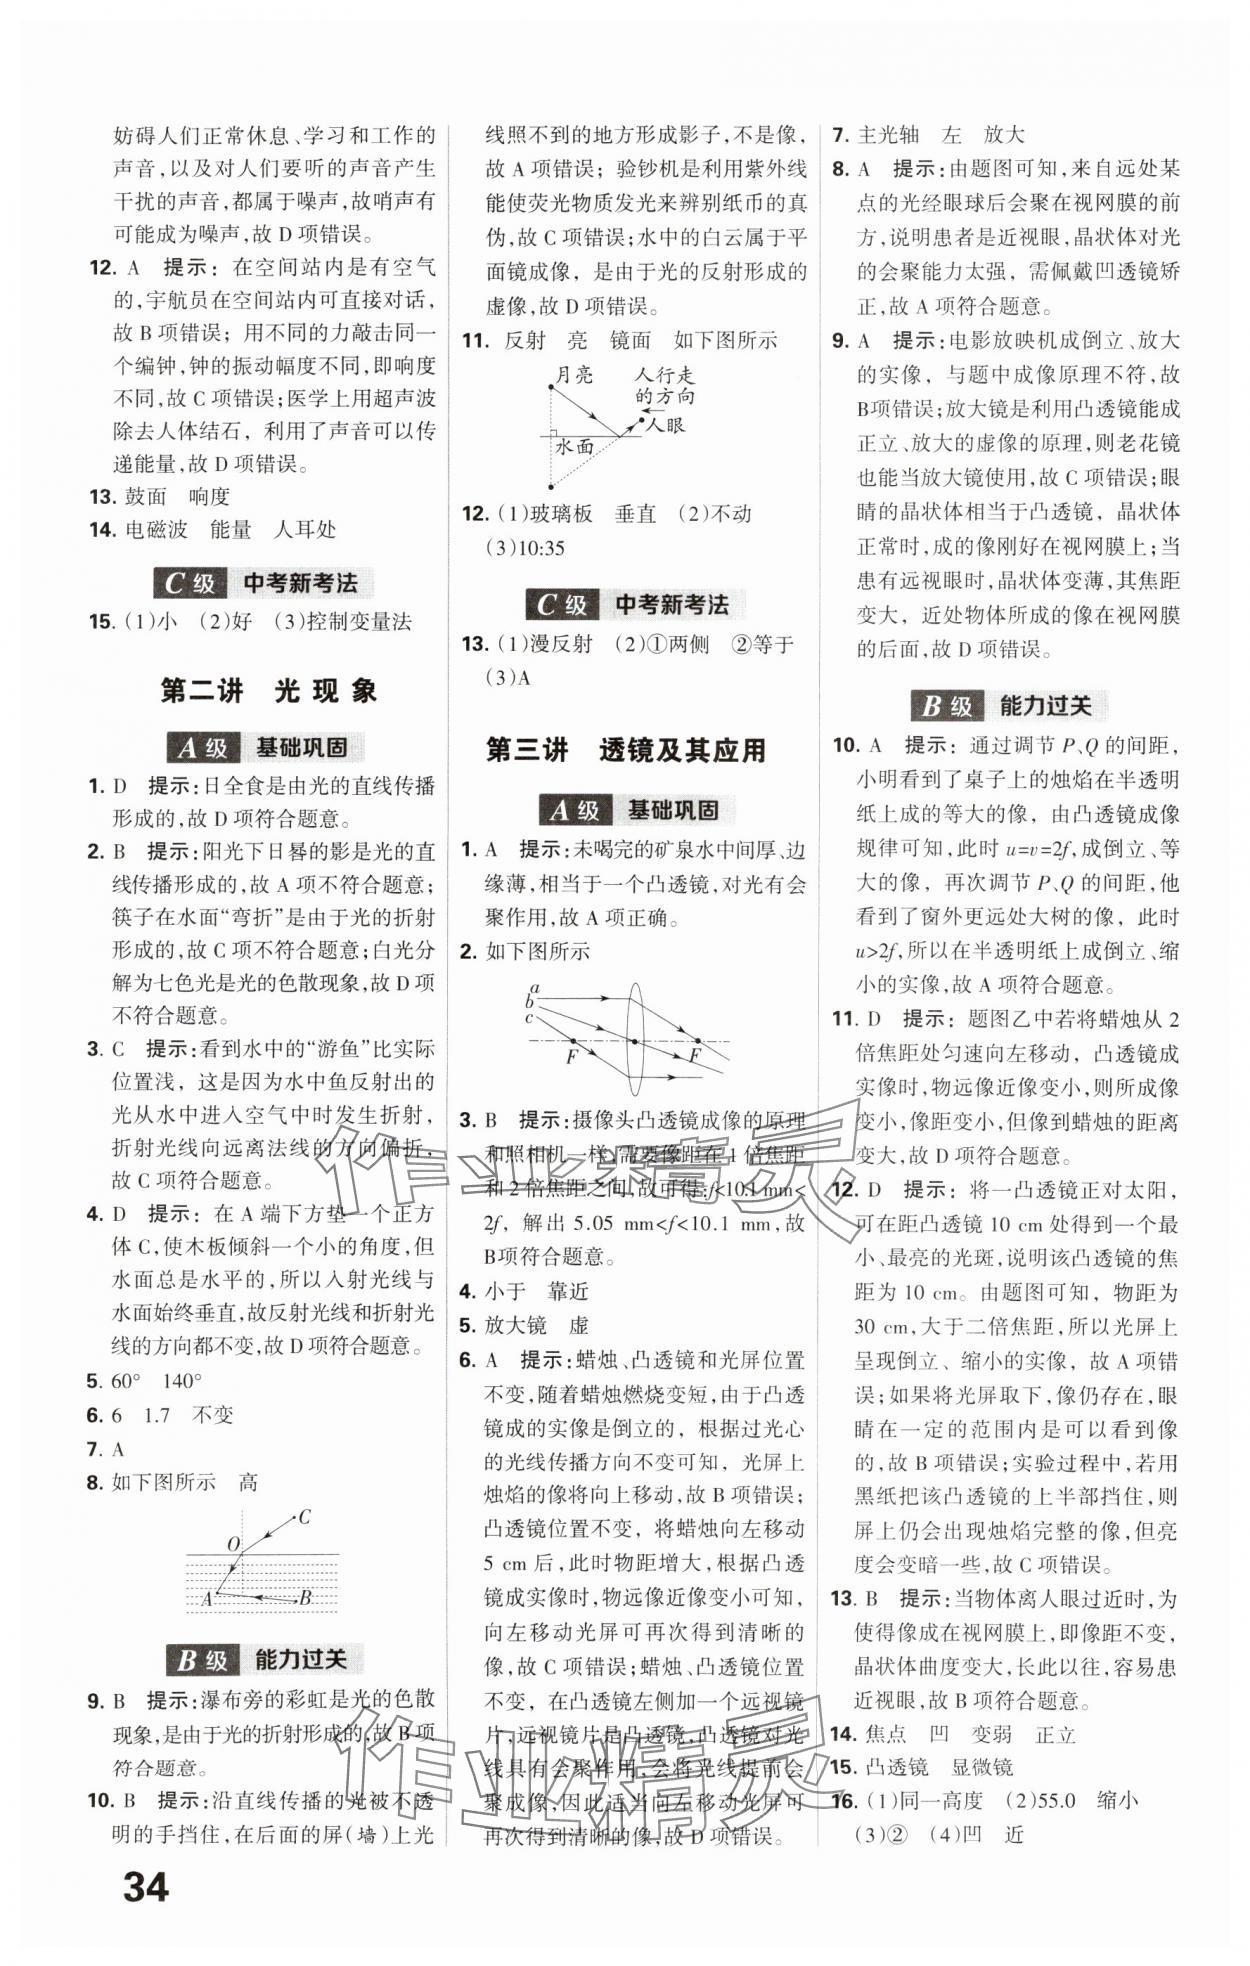 妨碍人们正常休息、学习和工作的
声音,以及对人们要听的声音产生
干扰的声音,都属于噪声,故哨声有
可能成为噪声,故 D 项错误。
12. A 提示:在空间站内是有空气
的,宇航员在空间站内可直接对话,
故 B 项错误;用不同的力敲击同一
个编钟,钟的振动幅度不同,即响度
不同,故 C 项错误;医学上用超声波
除去人体结石,利用了声音可以传
递能量,故 D 项错误。
13. 鼓面 响度
14. 电磁波 能量 人耳处
C 级 中考新考法
15. (1)小 (2)好 (3)控制变量法
第二讲 光现象
A 级 基础巩固
1. D 提示:日全食是由光的直线传播
形成的,故 D 项符合题意。
2. B 提示:阳光下日晷的影是光的直
线传播形成的,故 A 项不符合题意;
筷子在水面“弯折”是由于光的折射
形成的,故 C 项不符合题意;白光分
解为七色光是光的色散现象,故 D 项
不符合题意。
3. C 提示:看到水中的“游鱼”比实际
位置浅,这是因为水中鱼反射出的
光从水中进入空气中时发生折射,
折射光线向远离法线的方向偏折,
故 C 项符合题意。
4. D 提示:在 A 端下方垫一个正方
体 C,使木板倾斜一个小的角度,但
水面总是水平的,所以入射光线与
水面始终垂直,故反射光线和折射光
线的方向都不变,故 D 项符合题意。
5. 60° 140°
6. 6 1.7 不变
7. A
8. 如下图所示 高
C
O
A
B
B 级 能力过关
9. B 提示:瀑布旁的彩虹是光的色散
现象,是由于光的折射形成的,故 B 项
符合题意。
10. B 提示:沿直线传播的光被不透
明的手挡住,在后面的屏(墙)上光
线照不到的地方形成影子,不是像,
故 A 项错误;验钞机是利用紫外线
能使荧光物质发光来辨别纸币的真
伪,故 C 项错误;水中的白云属于平
面镜成像,是由于光的反射形成的
虚像,故 D 项错误。
11. 反射 亮 镜面 如下图所示
月亮 人行走
的方向
人眼
水面
12. (1)玻璃板 垂直 (2)不动
(3)10:35
C 级 中考新考法
13. (1)漫反射 (2)①两侧 ②等于
(3)A
第三讲 透镜及其应用
A 级 基础巩固
1. A 提示:未喝完的矿泉水中间厚、边
缘薄,相当于一个凸透镜,对光有会
聚作用,故 A 项正确。
2. 如下图所示
a
b
c
F F
3. B 提示:摄像头凸透镜成像的原理
和照相机一样,需要像距在 1 倍焦距
和 2 倍焦距之间,故可得:f<10.1 mm<
2f,解出 5.05 mm<f<10.1 mm,故
B项符合题意。
4. 小于 靠近
5. 放大镜 虚
6. A 提示:蜡烛、凸透镜和光屏位置
不变,随着蜡烛燃烧变短,由于凸透
镜成的实像是倒立的,根据过光心
的光线传播方向不变可知,光屏上
烛焰的像将向上移动,故 B 项错误;
凸透镜位置不变,将蜡烛向左移动
5 cm 后,此时物距增大,根据凸透
镜成实像时,物远像近像变小可知,
向左移动光屏可再次得到清晰的
像,故 C 项错误;蜡烛、凸透镜位置
不变,在凸透镜左侧加一个远视镜
片,远视镜片是凸透镜,凸透镜对光
线具有会聚作用,会将光线提前会
聚成像,因此适当向左移动光屏可
再次得到清晰的像,故 D 项错误。
7. 主光轴 左 放大
8. A 提示:由题图可知,来自远处某
点的光经眼球后会聚在视网膜的前
方,说明患者是近视眼,晶状体对光
的会聚能力太强,需佩戴凹透镜矫
正,故 A 项符合题意。
9. A 提示:电影放映机成倒立、放大
的实像,与题中成像原理不符,故
B项错误;放大镜是利用凸透镜能成
正立、放大的虚像的原理,则老花镜
也能当放大镜使用,故 C 项错误;眼
睛的晶状体相当于凸透镜,晶状体
正常时,成的像刚好在视网膜上;当
患有远视眼时,晶状体变薄,其焦距
变大,近处物体所成的像在视网膜
的后面,故 D 项错误。
B 级 能力过关
10. A 提示:通过调节 P、Q 的间距,
小明看到了桌子上的烛焰在半透明
纸上成的等大的像,由凸透镜成像
规律可知,此时 u=v=2f,成倒立、等
大的像,再次调节 P、Q 的间距,他
看到了窗外更远处大树的像,此时
u>2f,所以在半透明纸上成倒立、缩
小的实像,故 A 项符合题意。
11. D 提示:题图乙中若将蜡烛从 2
倍焦距处匀速向左移动,凸透镜成
实像时,物远像近像变小,则所成像
变小,像距变小,但像到蜡烛的距离
变大,故 D 项符合题意。
12. D 提示:将一凸透镜正对太阳,
可在距凸透镜 10 cm 处得到一个最
小、最亮的光斑,说明该凸透镜的焦
距为 10 cm。由题图可知,物距为
30 cm,大于二倍焦距,所以光屏上
呈现倒立、缩小的实像,故 A 项错
误;如果将光屏取下,像仍存在,眼
睛在一定的范围内是可以看到像
的,故 B 项错误;实验过程中,若用
黑纸把该凸透镜的上半部挡住,则
屏上仍会出现烛焰完整的像,但亮
度会变暗一些,故 C 项错误。
13. B 提示:当物体离人眼过近时,为
使得像成在视网膜上,即像距不变,
晶状体曲度变大,长此以往,容易患
近视眼,故 B 项符合题意。
14. 焦点 凹 变弱 正立
15. 凸透镜 显微镜
16. (1)同一高度 (2)55.0 缩小
(3)② (4)凹 近
34
作业精灵
作业精灵